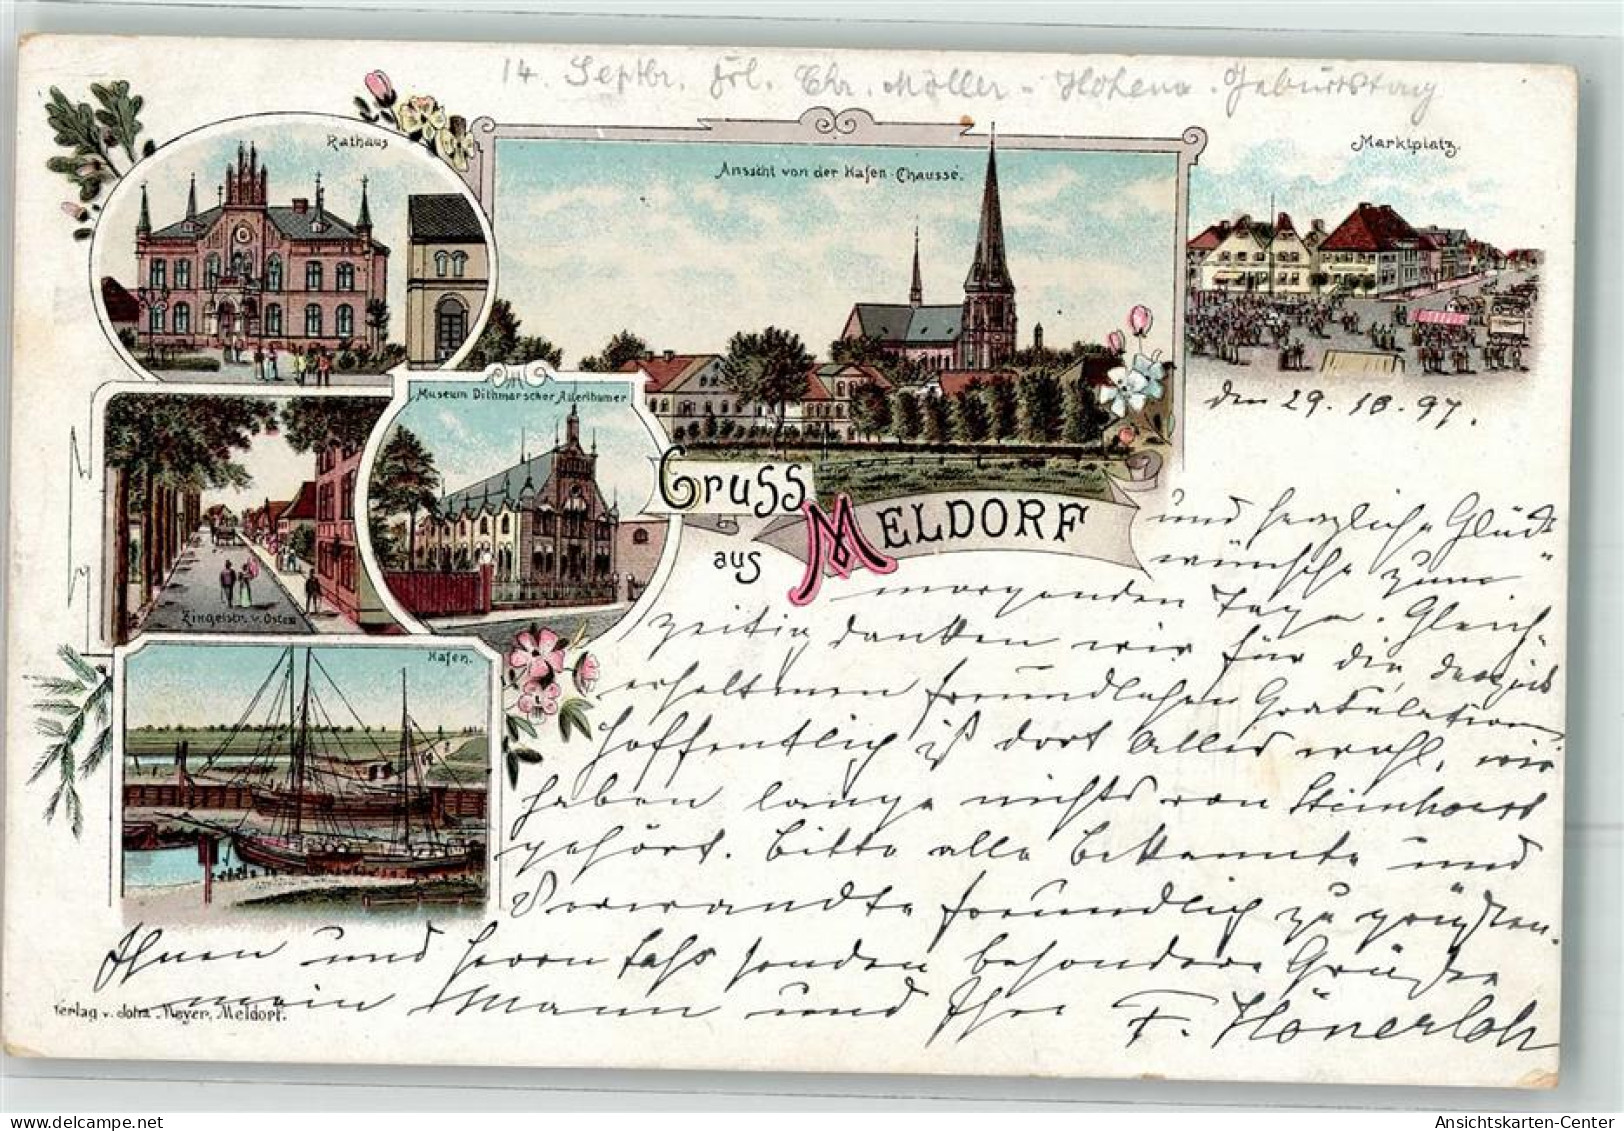 14. Septbr. Frl. Chr. Möller - Hohenw. Geburtstag
Rathaus
Ansicht von der Hafen-Chausse.
Marktplatz.
Museum Dithmarscher Alterthümer
Zingelstr. v. Osten
Hafen.
Gruss
aus MELDORF
den 29. 10. 97.
und herzliche Glück-
wünsche zum
morgenden Tage. Gleich-
zeitig danken wir für die
erhaltenen freundlichen Gratulation
hoffentlich ist dort Alles wohl, wir
haben lange nichts von Steinhorst
gehört. Bitte alle Bekannte und
Verwandte freundlich zu grüßen.
Ihnen und Herrn senden besondere Grüße
mein Mann und Ihre F.
Verlag v. Johs. Meyer, Meldorf.
Ansichtskarten-Center